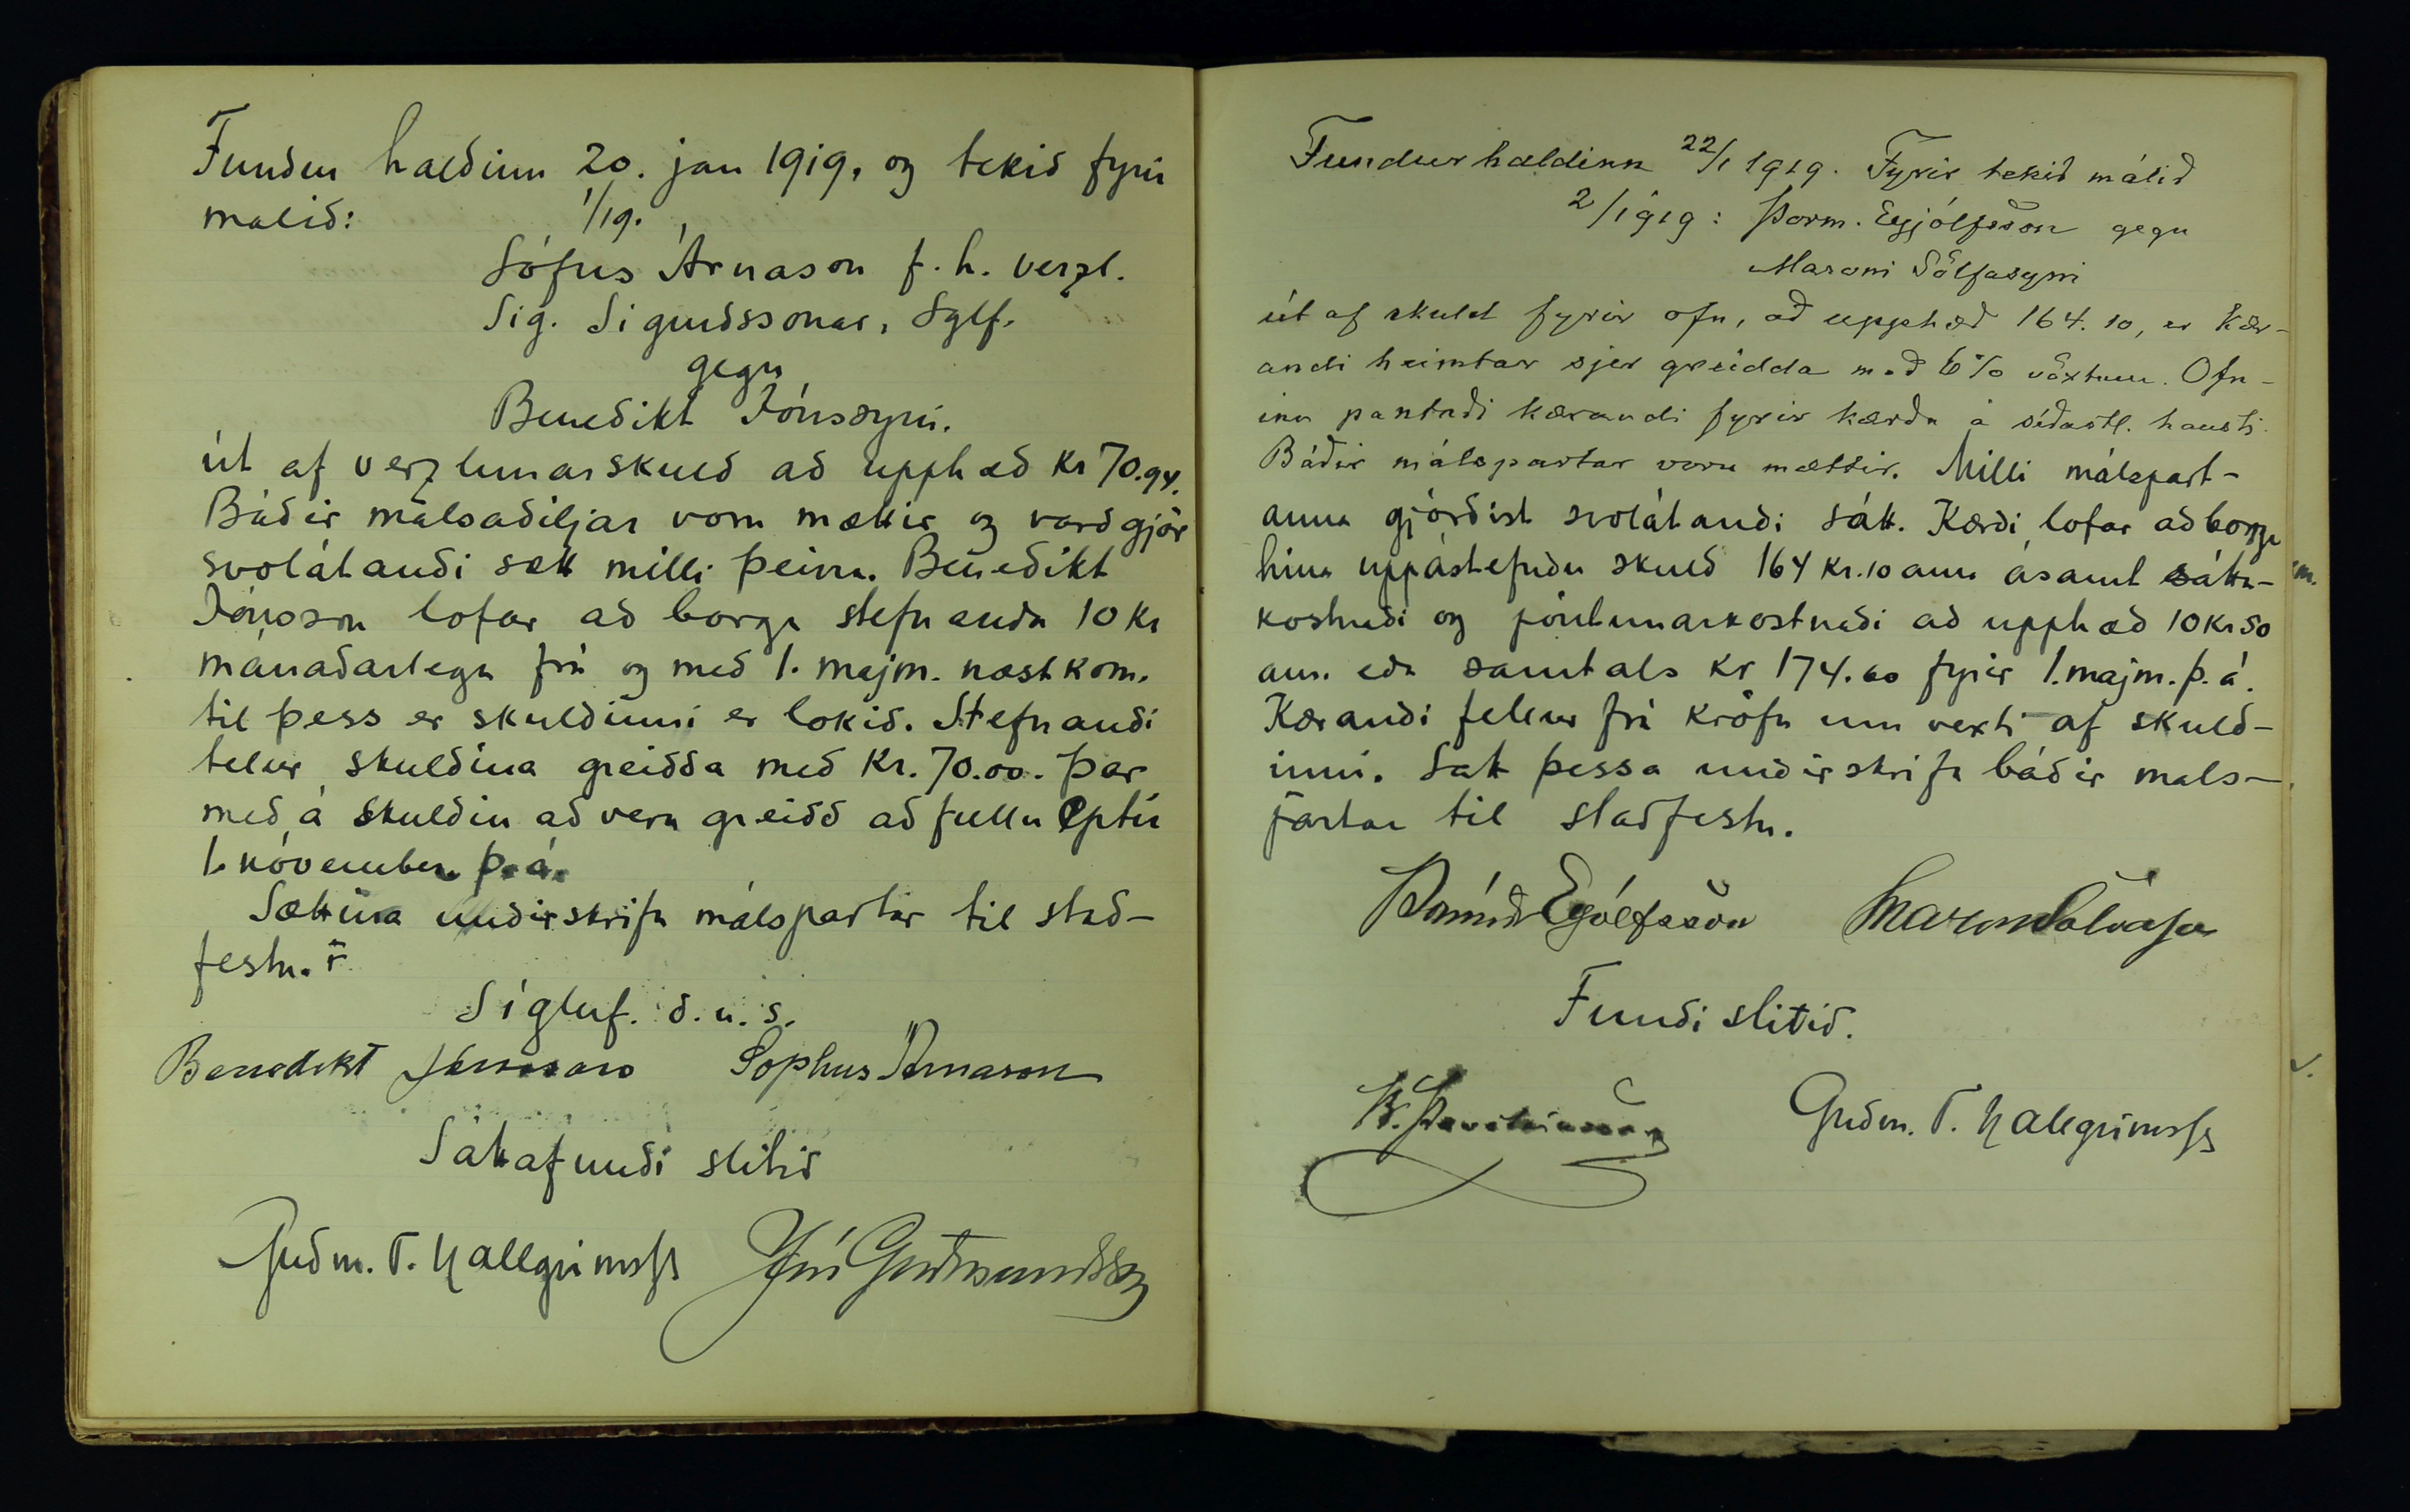 Fundur haldinn 20. jan 1919, og tekið fyrir
malið: 1/19.
Sófus Árnason f. h. verzl.
Sig. Sigurðssonar, Sglf.
gegn
Benedikt Jónssyni.
út af verzlunarskuld að upphæð kr 70.94.
Báðir málsaðiljar voru mættir og varð gjör
svolátandi sætt milli þeirra. Benedikt
Jónsson lofar að borga stefnanda 10 kr
mánaðarlega frá og með 1. majm. næstkom.
til þess er skuldinni er lokið. Stefnandi
telur skuldina greidda með Kr. 70.00. Þar
með á skuldin að vera greidd að fullu eptir
1. nóvember þ.á.
Sættina undirskrifa málspartar til stað-
festu.
Sigluf. d. u. s.
Benedikt Jónsson Sophus Árnason
Sáttafundi slitið
Guðm. T. Hallgrímss Jón Guðmundsson
Fundur haldinn 22/1 1919. Fyrir tekið málið
2/1919: Þorm. Eyjólfsson gegn
Maroni Sölfasyni
út af skuld fyrir ofn, að upphæð 164.10, er kær-
andi heimtar sjer greidda með 6% vöxtum. Ofn-
inn pantaði kærandi fyrir kærða á síðastl. hausti.
Báðir málspartar voru mættir. Milli málspart-
anna gjörðist svolátandi sátt. Kærði lofar að borga
hina uppástefndu skuld 164 kr. 10 aura ásamt sátta-
kostnaði og pöntunarkostnaði að upphæð 10 kr 50
aur. eða samtals kr 174.60 fyrir 1. majm. þ. á.
Kærandi fellur frá kröfu um vexti af skuld-
inni. Sætt þessa undirskrifa báðir mals-
partar til staðfestu.
Þormóður Eyjólfsson Maron Sölvason
Fundi slitið.
Guðm. T. Hallgrímss